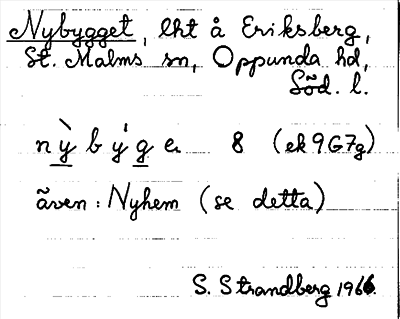 Nybygget, lht å Eriksberg,
St. Malms sn, Oppunda hd,
Söd. l.
nỳbýge 8 (ek 9G7g)
även: Nyhem (se detta)
S. Strandberg 1966